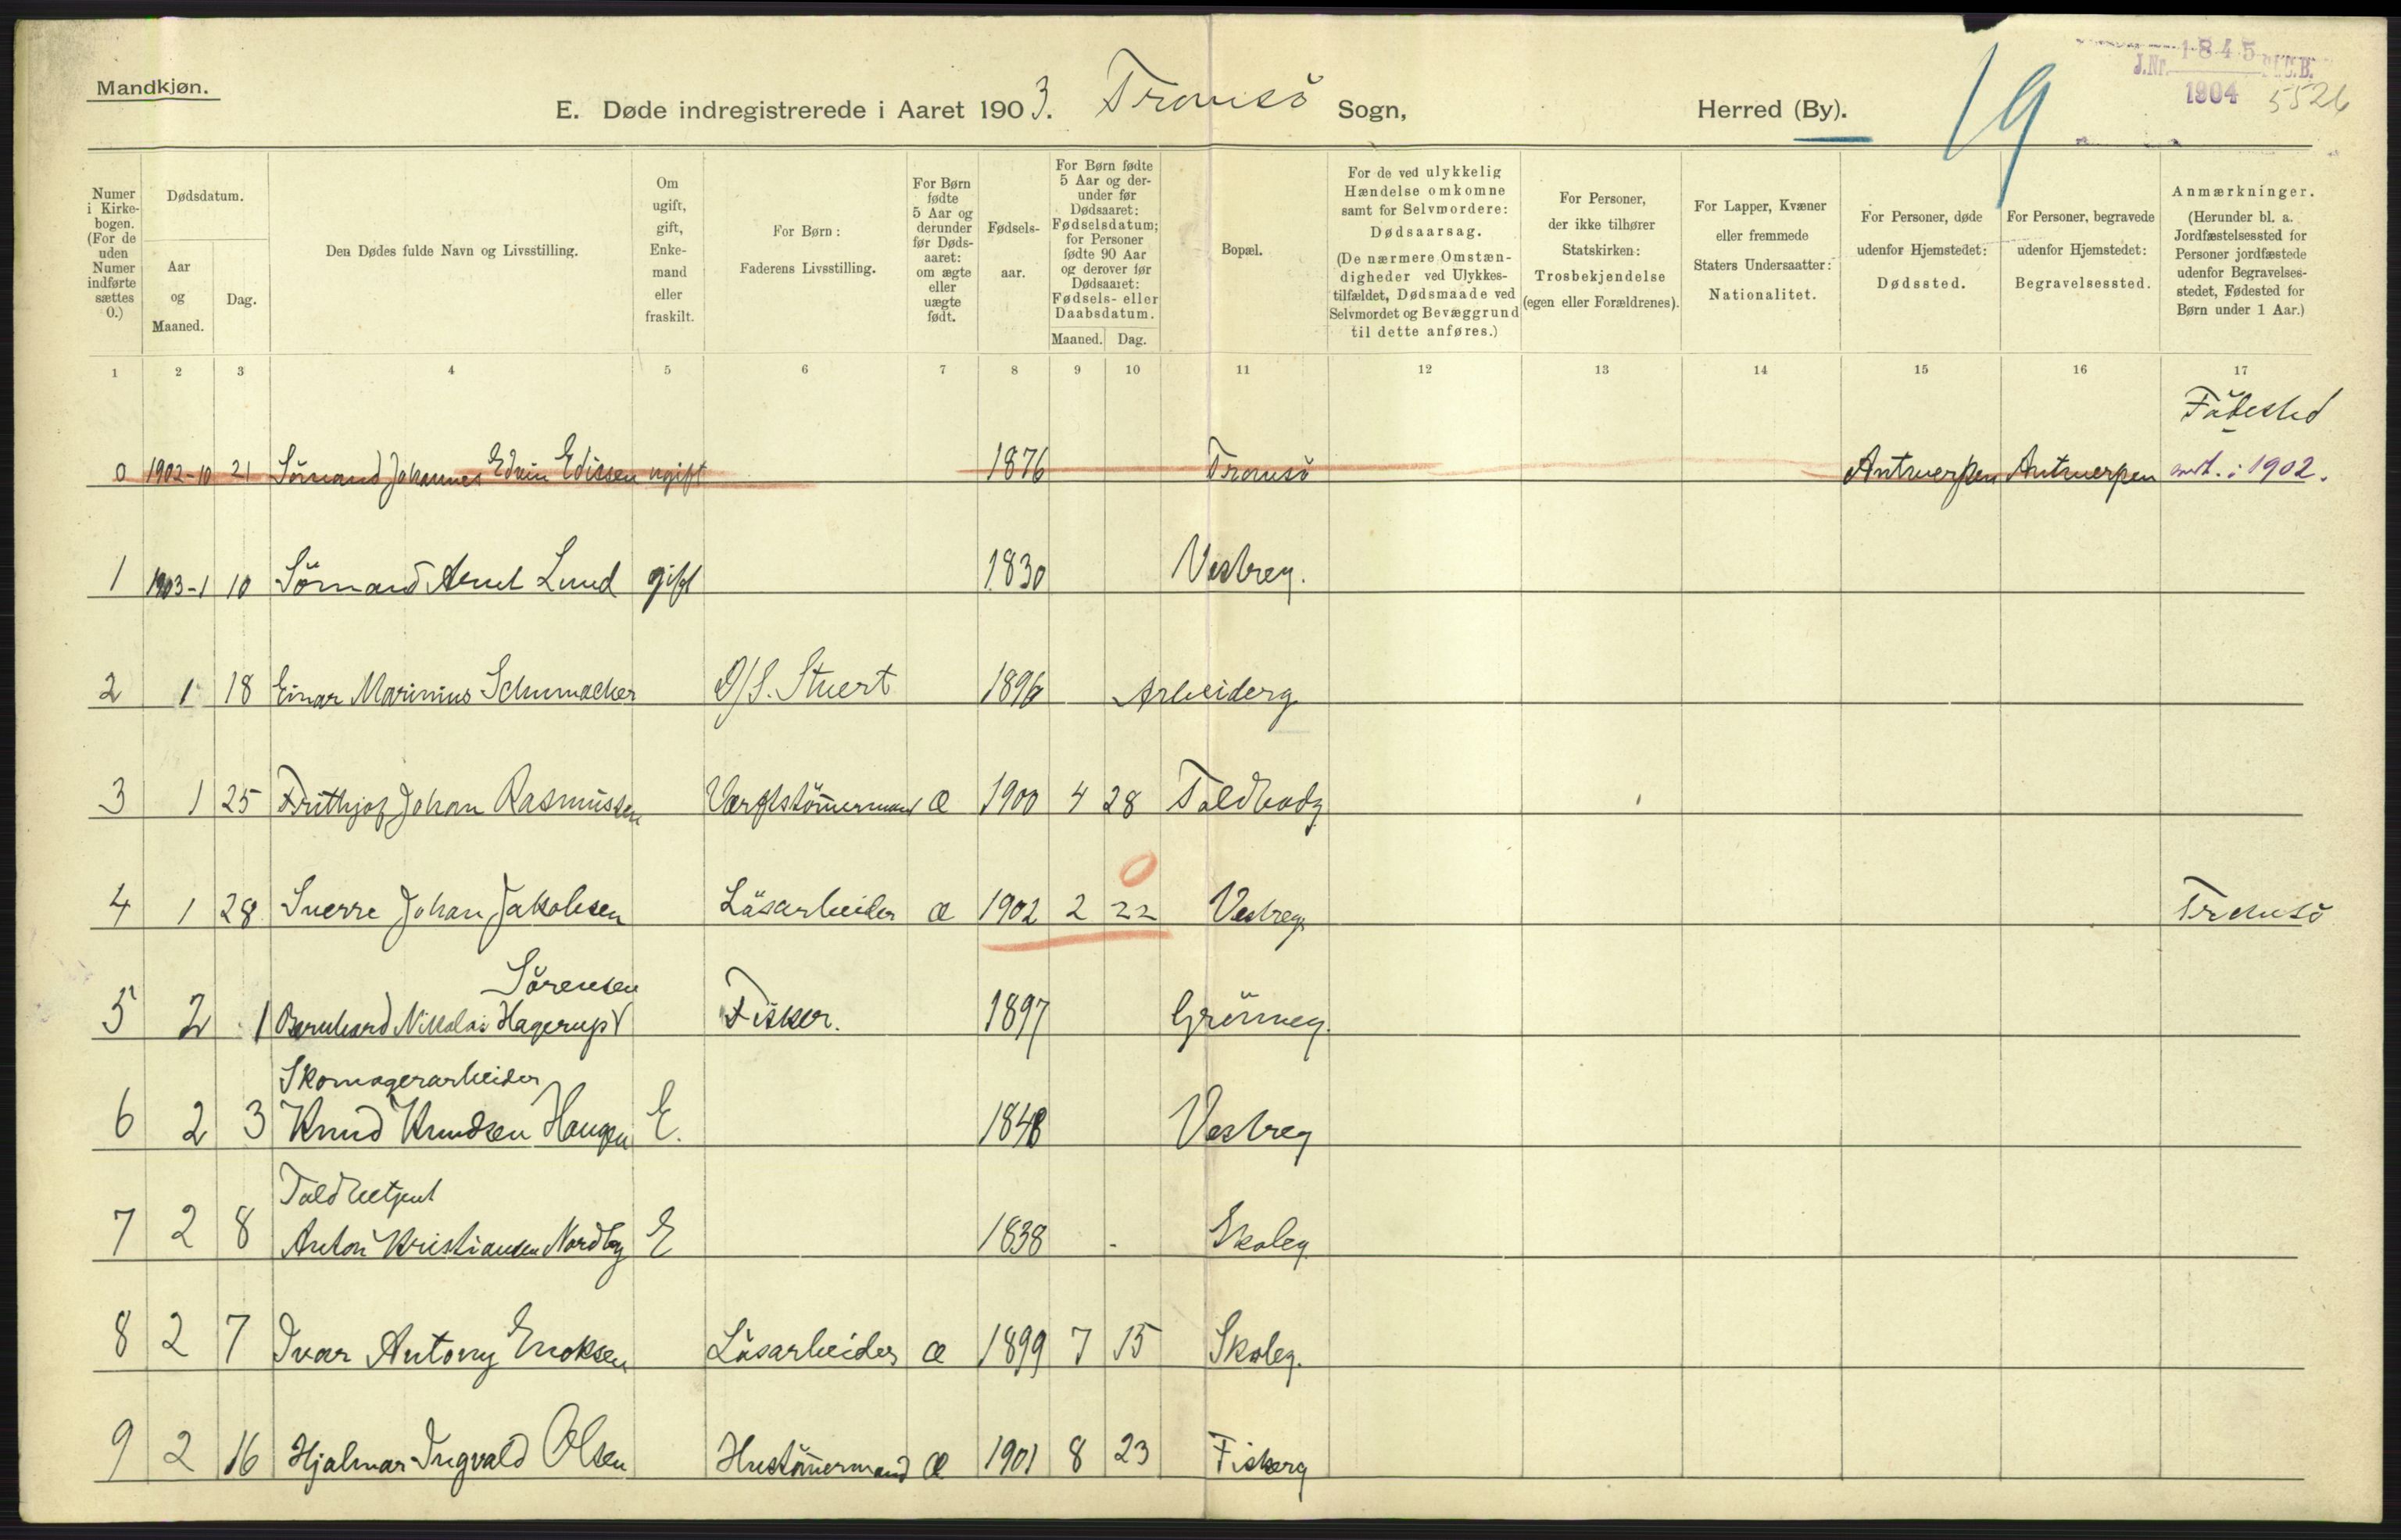 Mandkjøn.
E. Døde indregistrerede i Aaret 1903. Tromsö Sogn, Herred (By).
19
J.Nr. 1845
1904 5526
Numer i Kirkebogen. (For de uden Numer indførte sættes 0.)
Dødsdatum.
Aar og Maaned.
Dag.
Den Dødes fulde Navn og Livsstilling.
Om ugift, gift, Enkemand eller fraskilt.
For Børn: Faderens Livsstilling.
For Børn fødte 5 Aar og derunder før Dødsaaret: om ægte eller uægte født.
Fødselsaar.
For Børn fødte 5 Aar og derunder før Dødsaaret: Fødselsdatum; for Personer fødte 90 Aar og derover før Dødsaaret: Fødsels- eller Daabsdatum.
Maaned. Dag.
Bopæl.
For de ved ulykkelig Hændelse omkomne samt for Selvmordere: Dødsaarsag. (De nærmere Omstændigheder ved Ulykkestilfældet, Dødsmaade ved Selvmordet og Bevæggrund til dette anføres.)
For Personer, der ikke tilhører Statskirken: Trosbekjendelse (egen eller Forældrenes).
For Lapper, Kvæner eller fremmede Staters Undersaatter: Nationalitet.
For Personer, døde udenfor Hjemstedet: Dødssted.
For Personer, begravede udenfor Hjemstedet: Begravelsessted.
Anmærkninger. (Herunder bl. a. Jordfæstelsessted for Personer jordfæstede udenfor Begravelsesstedet, Fødested for Børn under 1 Aar.)
1 2 3 4 5 6 7 8 9 10 11 12 13 14 15 16 17
Födested
0 1902-10 21 Sömand Johannes Edvin Edissen ugift 1876 Tromsö Antwerpen Antwerpen medt. i 1902.
1 1903-1 10 Sömand Arnt Lund gift 1830 Vestreg.
2 1 18 Einar Marinius Schumacher D/S. Stuert 1896 Arbeiderg
3 1 25 Frithjof Johan Rasmussen Værftstömermand æ 1900 4 28 Toldbodg
0
4 1 28 Sverre Johan Jakobsen Lösarbeider æ 1902 2 22 Vestreg. Tromsö
Sörensen
5 2 1 Bernhard Nikolai Hagerup Fisker. 1897 Grönneg.
Skomagerarbeider
6 2 3 Knud Knudsen Haugen E. 1848 Vestreg
Toldbetjent
7 2 8 Anton Kristiansen Nordby E 1838 Skoleg
8 2 7 Ivar Antony Enoksen Lösarbeider æ 1899 7 15 Skoleg.
9 2 16 Hjalmar Ingvald Olsen Hustömermand æ 1901 8 23 Fiskerg